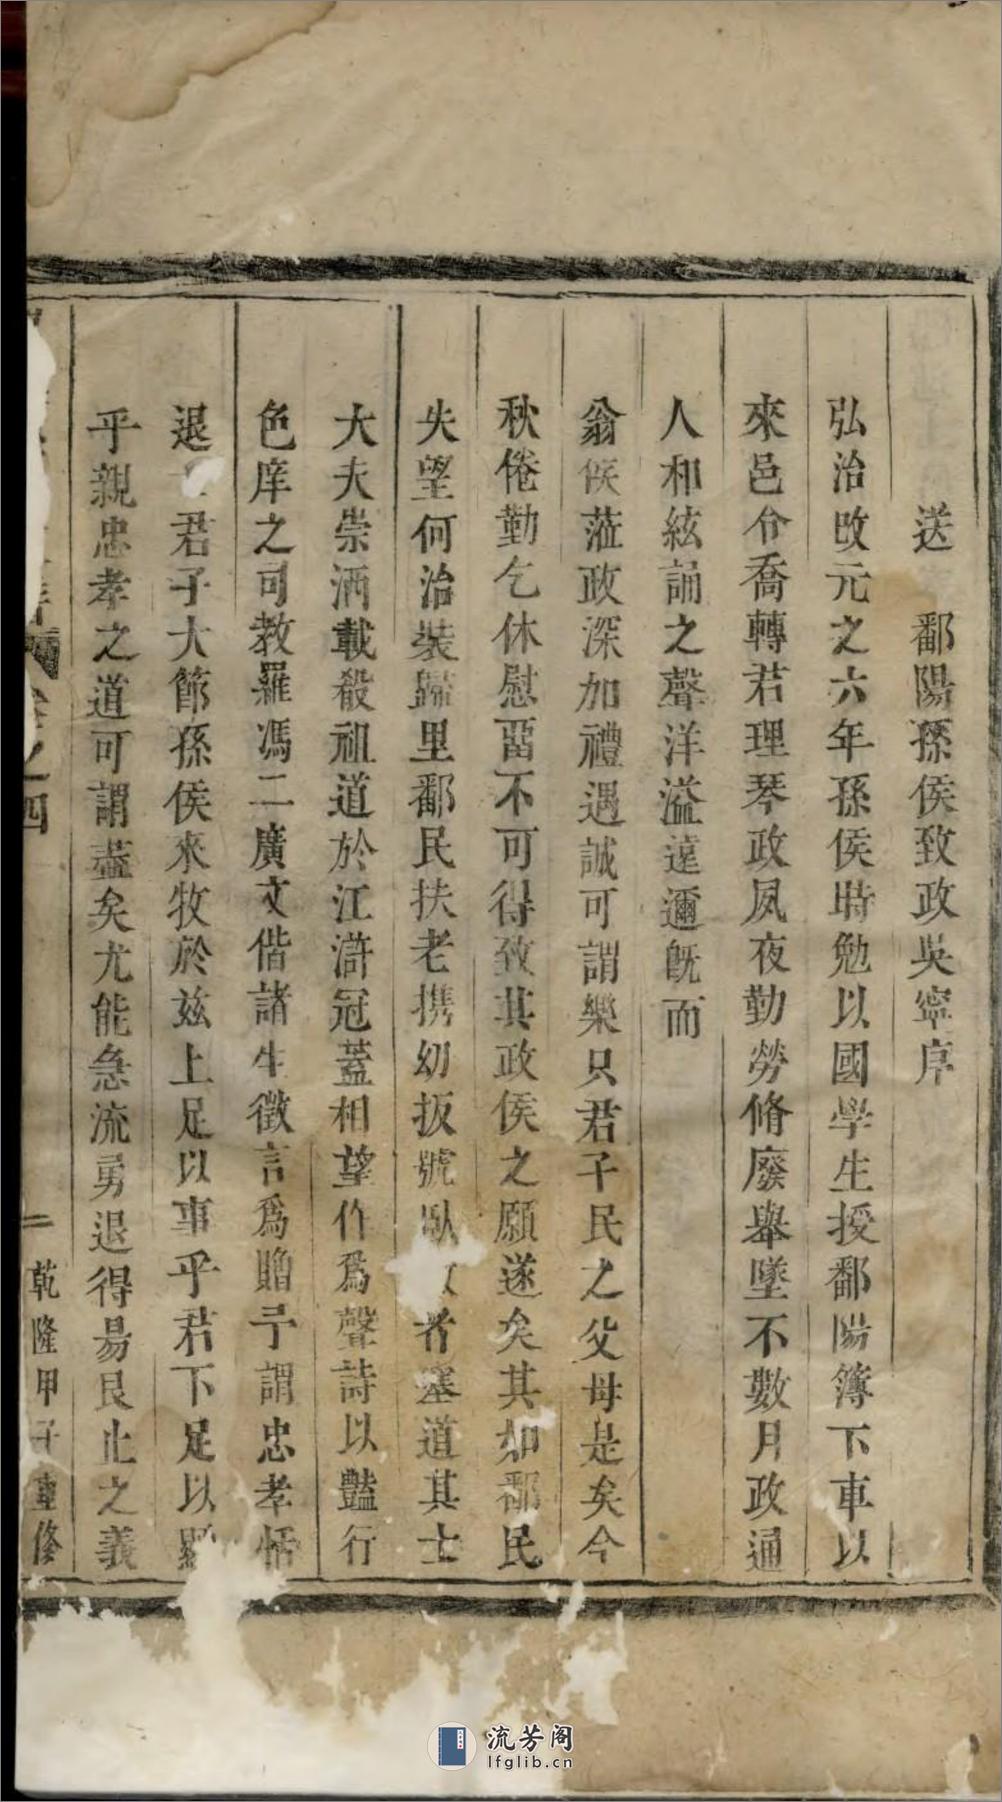 送 鄱陽孫侯致政吳寧序
弘治改元之六年孫侯時勉以國學生授鄱陽簿下車以
來邑令喬轉君理琴政夙夜勤勞脩廢舉墜不數月政通
人和絃誦之聲洋溢遠邇旣而
翁侯蒞政深加禮遇誠可謂樂只君子民之父母是矣今
秋倦勤乞休慰畱不可得致其政侯之願遂矣其如鄱民
失望何治裝歸里鄱民扶老携幼扳號臥者塞道其士
大夫崇洒載殽祖道於江滸冠蓋相望作爲聲詩以豔行
色庠之司教羅馮二廣文偕諸生徵言爲贈予謂忠孝恬
退君子大節孫侯來牧於兹上足以事乎君下足以顯
乎親忠孝之道可謂盡矣尤能急流勇退得易艮止之義
卷之四
二
乾隆甲子重修
流芳阁
lfglib.cn